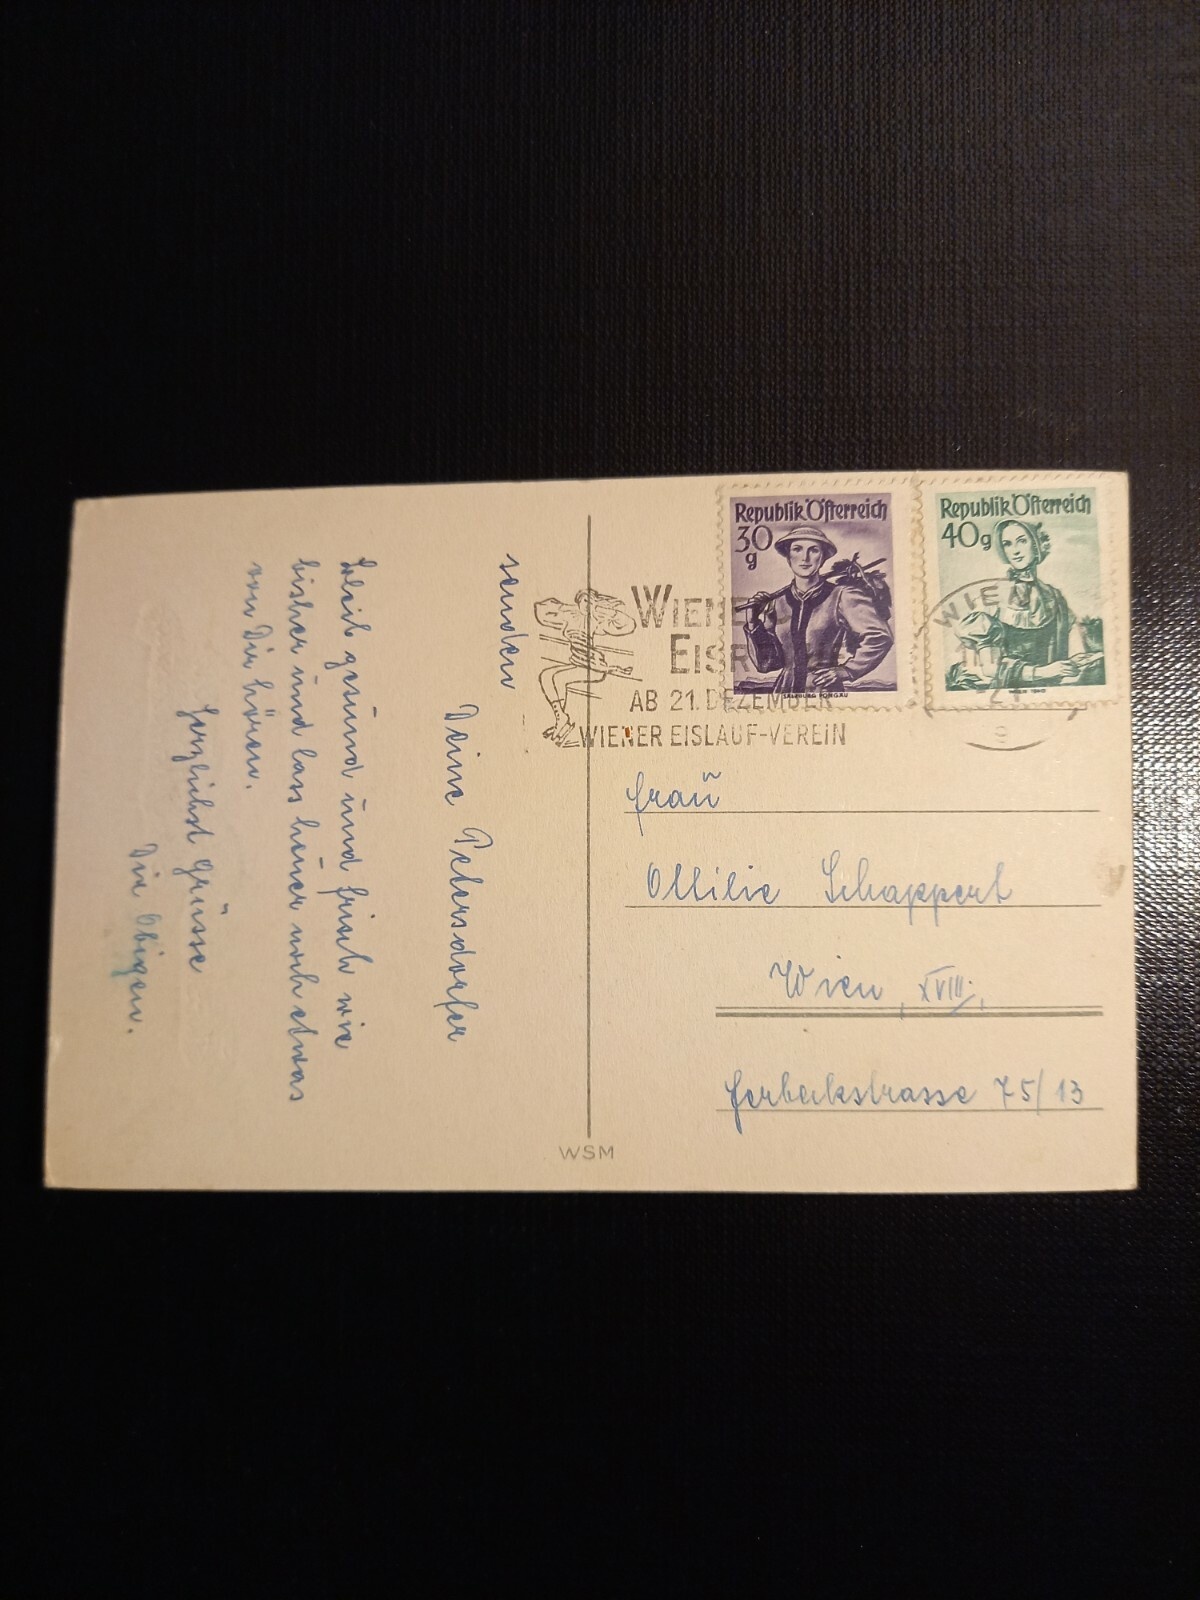 senden
Deine Petersdorfer
Bleib gesund und frisch wie
bisher und lass heuer noch etwas
von Dir hören.
Herzlichst Grüsse
Die Obigen.
Republik Österreich
30 g
SALZBURG PONGAU
Republik Österreich
40 g
WIEN 1840
WIEN
9
WIENER
EISR
AB 21. DEZEMBER
WIENER EISLAUF-VEREIN
Frau
Ottilie Schappert
Wien, XVIII.,
75/13
WSM